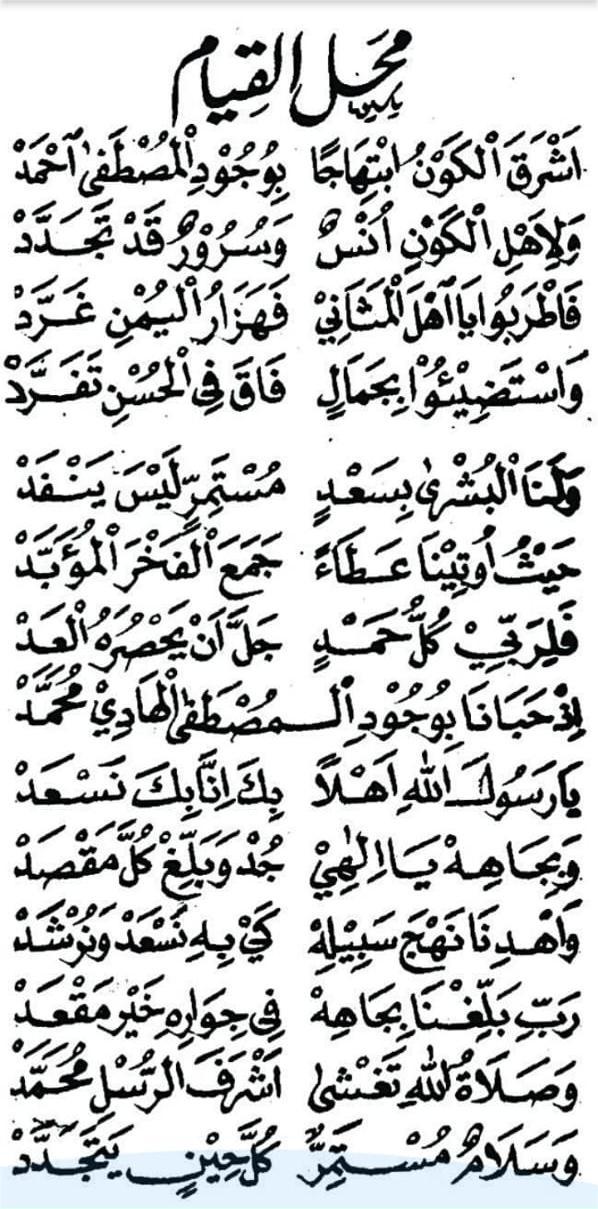 محل القيام
اَشْرَقَ الْكَوْنُ ابْتِهَاجًا بِوُجُوْدِ الْمُصْطَفٰى اَحْمَدْ
وَلِاَهْلِ الْكَوْنِ اُنْسٌ وَسُرُوْرٌ قَدْ تَجَدَّدْ
فَاطْرَبُوْا يَا اَهْلَ الْمَثَانِيْ فَهَزَارُ الْيُمْنِ غَرَّدْ
وَاسْتَضِيْئُوْا بِجَمَالٍ فَاقَ فِى الْحُسْنِ تَفَرَّدْ
وَلَنَا الْبُشْرٰى بِسَعْدٍ مُسْتَمِرٍّ لَيْسَ يَنْفَدْ
حَيْثُ اُوْتِيْنَا عَطَاءً جَمَعَ الْفَخْرَ الْمُؤَبَّدْ
فَلِرَبِّيْ كُلُّ حَمْدٍ جَلَّ اَنْ يَحْصُرَهُ الْعَدْ
اِذْ حَبَانَا بِوُجُوْدِ الْـمُصْطَفٰى الْهَادِيْ مُحَمَّدْ
يَا رَسُوْلَ اللهِ اَهْلًا بِكَ اِنَّا بِكَ نَسْعَدْ
وَبِجَاهِهْ يَا اِلٰهِيْ جُدْ وَبَلِّغْ كُلَّ مَقْصَدْ
وَاهْدِنَا نَهْجَ سَبِيْلِهْ كَيْ بِهِ نَسْعَدْ وَنُرْشَدْ
رَبِّ بَلِّغْنَا بِجَاهِهْ فِى جِوَارِهِ خَيْرَ مَقْعَدْ
وَصَلَاةُ اللهِ تَغْشٰى اَشْرَفَ الرُّسْلِ مُحَمَّدْ
وَسَلَامٌ مُسْتَمِرٌّ كُلَّ حِيْنٍ يَتَجَدَّدْ